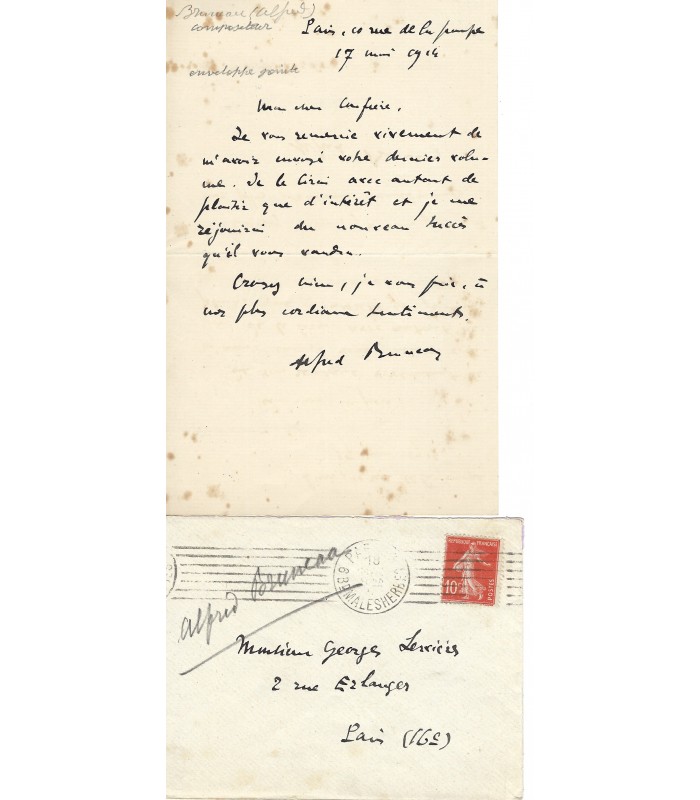 Bruneau (Alfred)
compositeur
enveloppe jointe
Paris, 10 rue de la pompe
17 mai 1914
Mon cher Confrère,
Je vous remercie vivement de
m'avoir envoyé votre dernier volu-
me. Je le lirai avec autant de
plaisir que d'intérêt et je me
réjouirai du nouveau succès
qu'il vous vaudra.
Croyez bien, je vous prie, à
mes plus cordiaux sentiments.
Alfred Bruneau
REPUBLIQUE FRANÇAISE
10
POSTES
18
BD MALESHERBES
Alfred Bruneau
Monsieur Georges
2 rue Erlanger
Paris (16e)